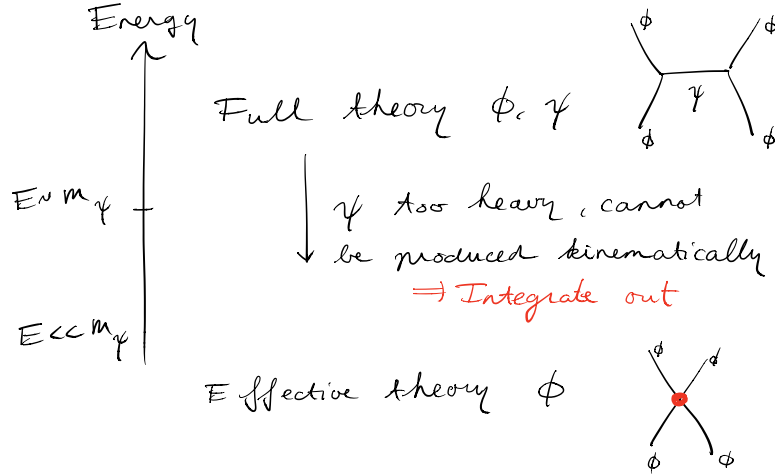 Energy
ϕ ϕ
Full theory ϕ, ψ
ψ
ϕ ϕ
E~m_ψ
ψ too heavy, cannot
be produced kinematically
⇒ Integrate out
E<<m_ψ
ϕ ϕ
Effective theory ϕ
ϕ ϕ